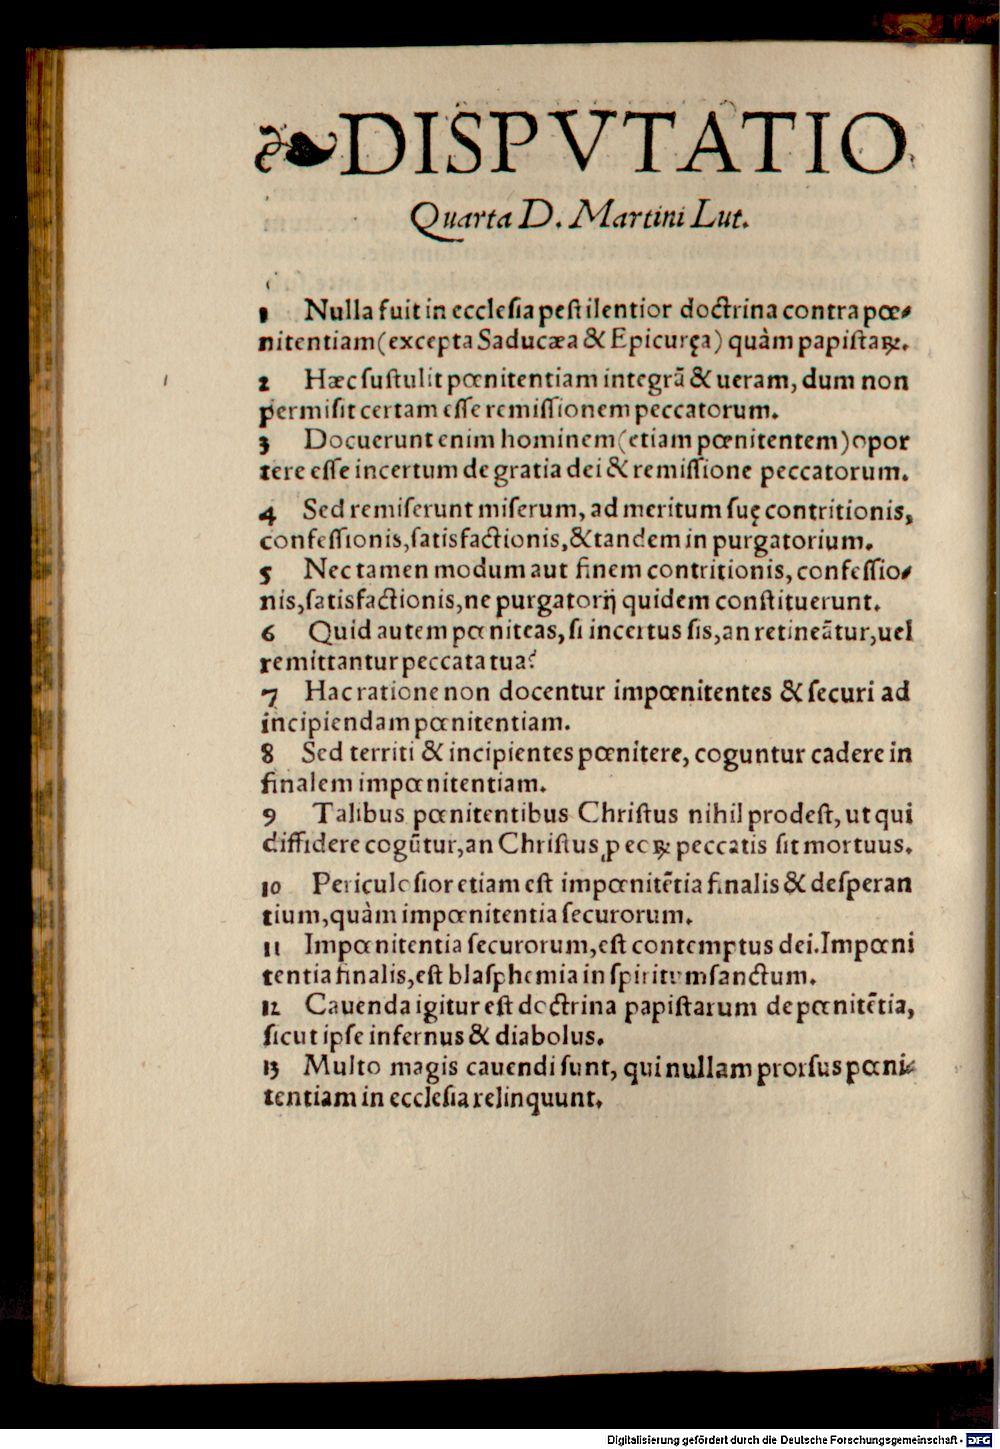 ❧DISPVTATIO
Quarta D. Martini Lut.
1 Nulla fuit in ecclesia pestilentior doctrina contra pœ-
nitentiam (excepta Saducæa & Epicuręa) quàm papistaꝝ.
2 Hæc sustulit pœnitentiam integrā & ueram, dum non
permisit certam esse remissionem peccatorum.
3 Docuerunt enim hominem (etiam pœnitentem) opor
tere esse incertum de gratia dei & remissione peccatorum.
4 Sed remiserunt miserum, ad meritum suę contritionis,
confessionis, satisfactionis, & tandem in purgatorium.
5 Nec tamen modum aut finem contritionis, confessio-
nis, satisfactionis, ne purgatorij quidem constituerunt.
6 Quid autem pœniteas, si incertus sis, an retineātur, uel
remittantur peccata tua?
7 Hac ratione non docentur impœnitentes & securi ad
incipiendam pœnitentiam.
8 Sed territi & incipientes pœnitere, coguntur cadere in
finalem impœnitentiam.
9 Talibus pœnitentibus Christus nihil prodest, ut qui
diffidere cogūtur, an Christus ꝓ eoꝝ peccatis sit mortuus.
10 Periculosior etiam est impœnitētia finalis & desperan
tium, quàm impœnitentia securorum.
11 Impœnitentia securorum, est contemptus dei. Impœni
tentia finalis, est blasphemia in spiritum sanctum.
12 Cauenda igitur est doctrina papistarum de pœnitētia,
sicut ipse infernus & diabolus.
13 Multo magis cauendi sunt, qui nullam prorsus pœni-
tentiam in ecclesia relinquunt.
Digitalisierung gefördert durch die Deutsche Forschungsgemeinschaft - DFG